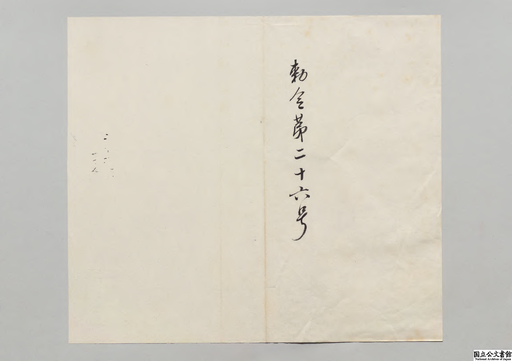 勅令第二十六号
国立公文書館
National Archives of Japan